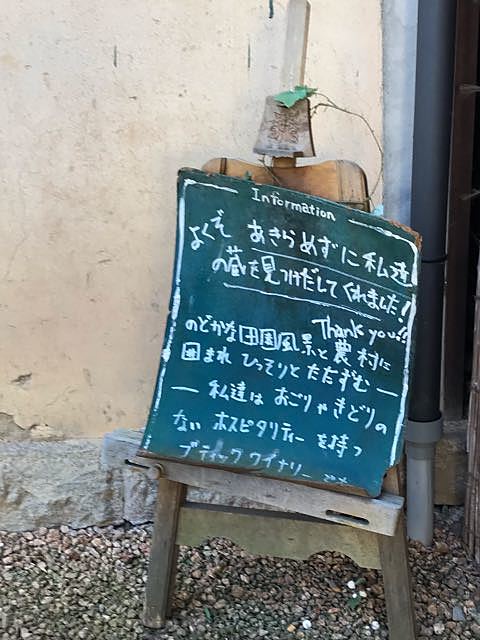 Information
よくぞ あきらめずに私達
の蔵を見つけだしてくれました!
Thank you!!
のどかな田園風景と農村に
囲まれ ひっそりとたたずむ
— 私達は おごりやきどりの
ない ホスピタリティーを持つ
ブティックワイナリー です